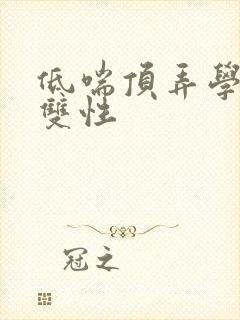 低喘頂弄學
雙性
冠之